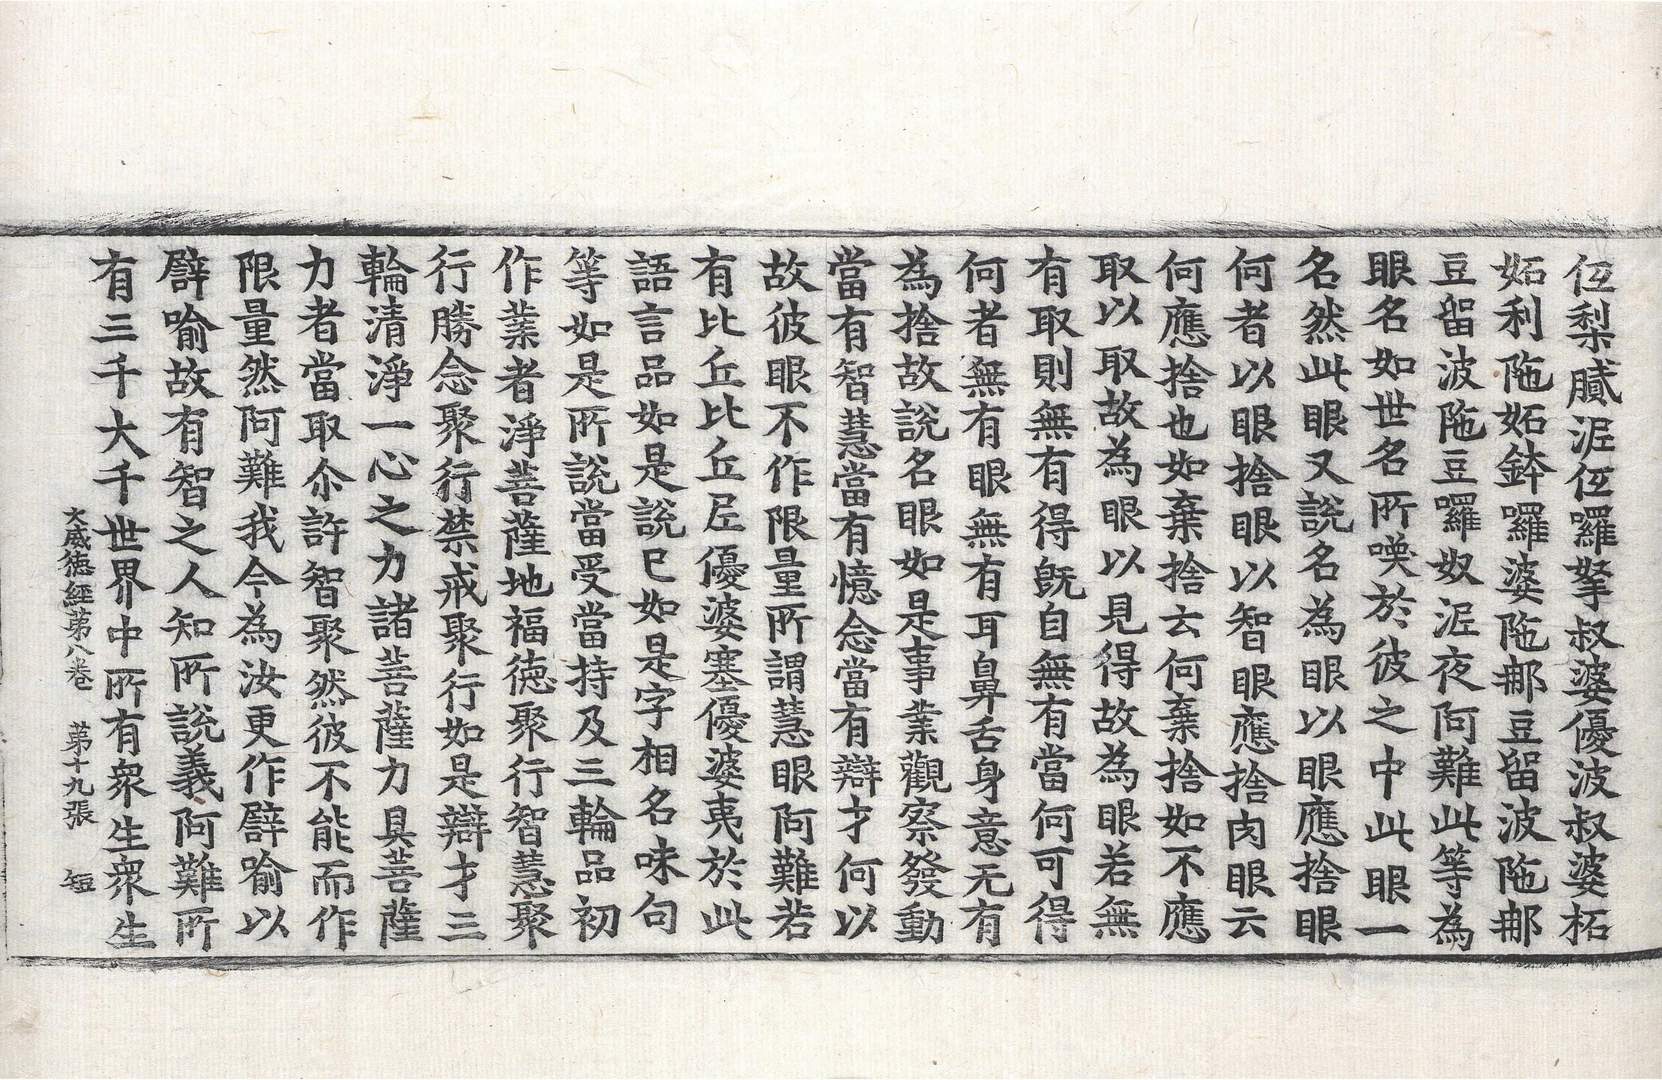 仾梨膩泥仾囉拏叔婆優波叔婆柘
妬利陁妬鉢囉婆陁郍豆留波陁郍
豆留波陁豆囉奴泥夜阿難此等為
眼名如世名所喚於彼之中此眼一
名然此眼又說名為眼以眼應捨眼
何者以眼捨眼以智眼應捨肉眼云
何應捨也如棄捨云何棄捨如不應
取以取故為眼以見得故為眼若無
有取則無有得旣自無有當何可得
何者無有眼無有耳鼻舌身意无有
為捨故說名眼如是事業觀察發動
當有智慧當有憶念當有辯才何以
故彼眼不作限量所謂慧眼阿難若
有比丘比丘尼優婆塞優婆夷於此
語言品如是說已如是字相名味句
等如是所說當受當持及三輪品初
作業者淨菩薩地福德聚行智慧聚
行勝念聚行禁戒聚行如是辯才三
輪清淨一心之力諸菩薩力具菩薩
力者當取尒許智聚然彼不能而作
限量然阿難我今為汝更作譬喻以
譬喻故有智之人知所說義阿難所
有三千大千世界中所有衆生衆生
大威德經第八卷 第十九張 短